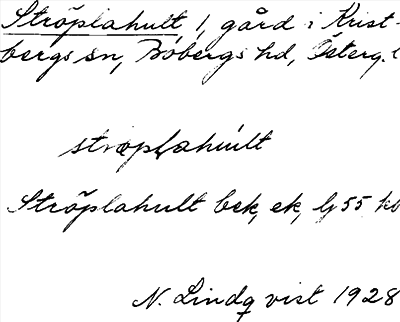 Ströplahult 1, gård i Krist-
bergs sn, Bobergs hd, Österg. l
ströplahult
Ströplahult bek, ek, lj 55 ko
N. Lindqvist 1928